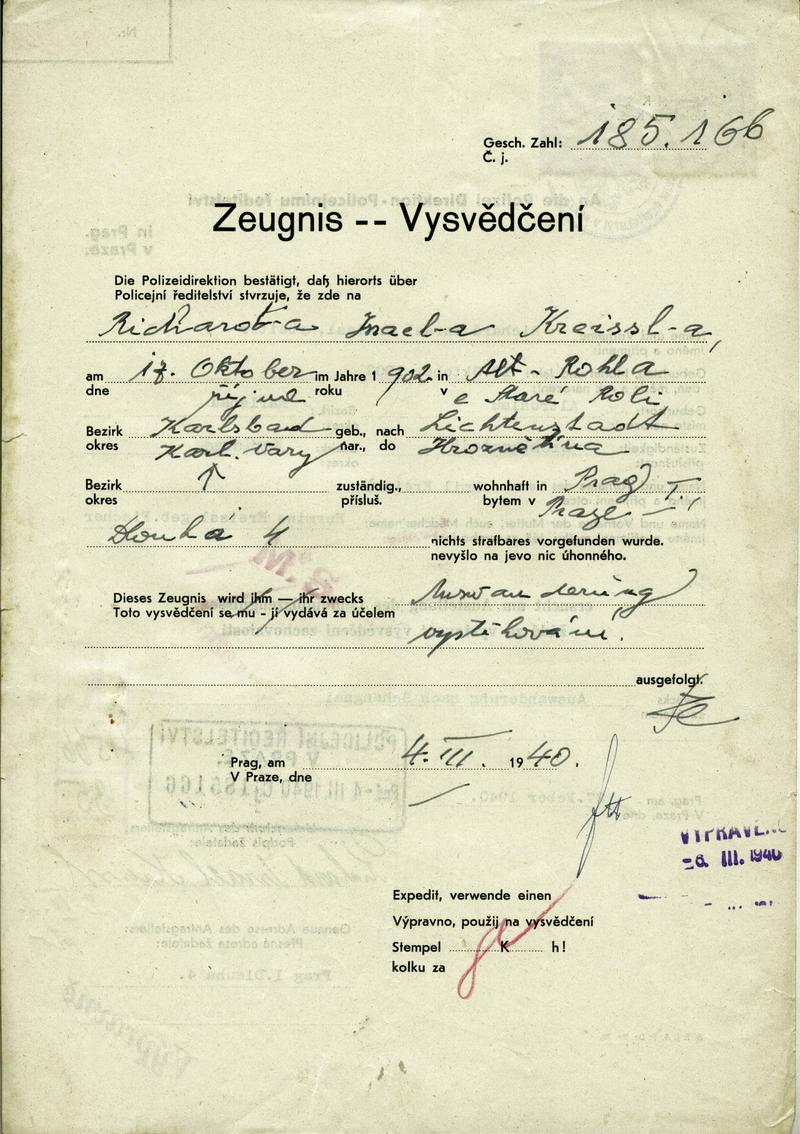 Gesch. Zahl: 185.166
Č. j.
Zeugnis -- Vysvědčení
Die Polizeidirektion bestätigt, daß hierorts über
Policejní ředitelství stvrzuje, že zde na
Richarda Israel-a Kreissl-a,
am 17. Oktober im Jahre 1 902. in Alt-Rohla
dne října roku v e Staré Roli
Bezirk Karlsbad geb., nach Lichtenstadt
okres Karl. Vary nar., do Hroznětína
Bezirk zuständig., wohnhaft in Prag I.
okres přísluš. bytem v Praze
Dlouhá 4 nichts strafbares vorgefunden wurde.
nevyšlo na jevo nic úhonného.
Dieses Zeugnis wird ihm — ihr zwecks Auswanderung
Toto vysvědčení se mu - jí vydává za účelem
vystěhování.
ausgefolgt.
Prag, am 4. III. 1940.
V Praze, dne
VYPRAVENO
-6. III. 1940
Expedit, verwende einen
Výpravno, použij na vysvědčení
Stempel K h!
kolku za